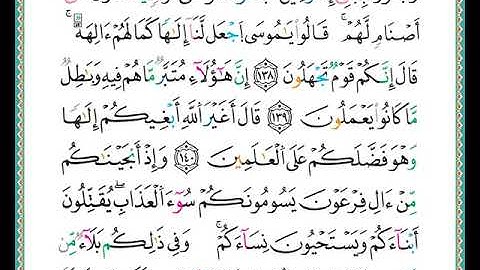 أَصْنَامٍ لَّهُمْ ۚ قَالُوا۟ يَـٰمُوسَى ٱجْعَل لَّنَآ إِلَـٰهًا كَمَا لَهُمْ ءَالِهَةٌ ۚ
قَالَ إِنَّكُمْ قَوْمٌ تَجْهَلُونَ ١٣٨ إِنَّ هَـٰٓؤُلَآءِ مُتَبَّرٌ مَّا هُمْ فِيهِ وَبَـٰطِلٌ
مَّا كَانُوا۟ يَعْمَلُونَ ١٣٩ قَالَ أَغَيْرَ ٱللَّهِ أَبْغِيكُمْ إِلَـٰهًا
وَهُوَ فَضَّلَكُمْ عَلَى ٱلْعَـٰلَمِينَ ١٤٠ وَإِذْ أَنجَيْنَـٰكُم
مِّنْ ءَالِ فِرْعَوْنَ يَسُومُونَكُمْ سُوٓءَ ٱلْعَذَابِ ۖ يُقَتِّلُونَ
أَبْنَآءَكُمْ وَيَسْتَحْيُونَ نِسَآءَكُمْ ۚ وَفِى ذَٰلِكُم بَلَآءٌ مِّن